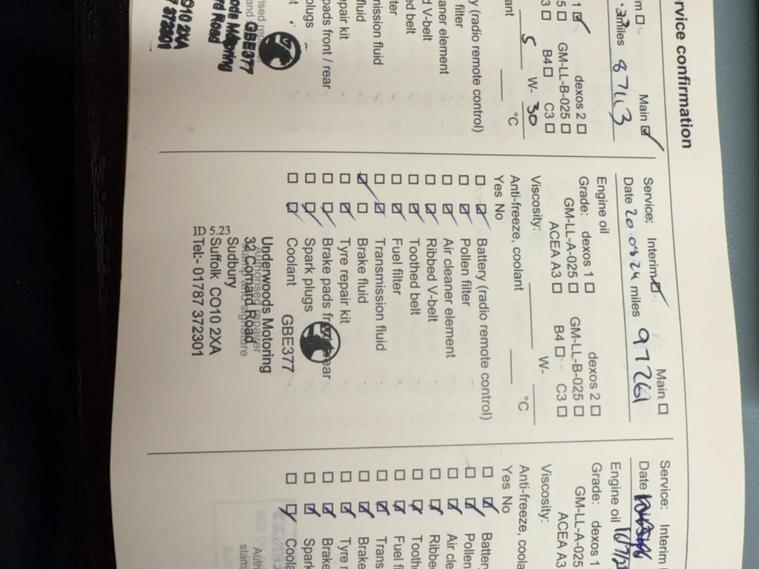 rvice confirmation
Main
miles 87113
dexos 2
GM-LL-B-025
B4 C3
5 W- 30
°C
y (radio remote control)
filter
aner element
d V-belt
ed belt
ter
mission fluid
fluid
epair kit
pads front / rear
plugs
GBE377
Service: Interim Main
Date 20.08.24 miles 97261
Engine oil
Grade: dexos 1 dexos 2
GM-LL-A-025 GM-LL-B-025
ACEA A3 B4 C3
Viscosity: W-
Anti-freeze, coolant °C
Yes No
Battery (radio remote control)
Pollen filter
Air cleaner element
Ribbed V-belt
Toothed belt
Fuel filter
Transmission fluid
Brake fluid
Tyre repair kit
Brake pads fr ear
Spark plugs
Coolant GBE377
Underwoods Motoring
32 Cornard Road
Sudbury
5.23 Suffolk CO10 2XA
Tel:- 01787 372301
Service: Interim
Date
Engine oil
Grade: dexos 1
GM-LL-A-025
ACEA A3
Viscosity:
Anti-freeze, coola
Yes No
Batter
Pollen
Air cle
Ribbe
Tooth
Fuel fi
Trans
Brake
Tyre r
Brake
Spark
Coola